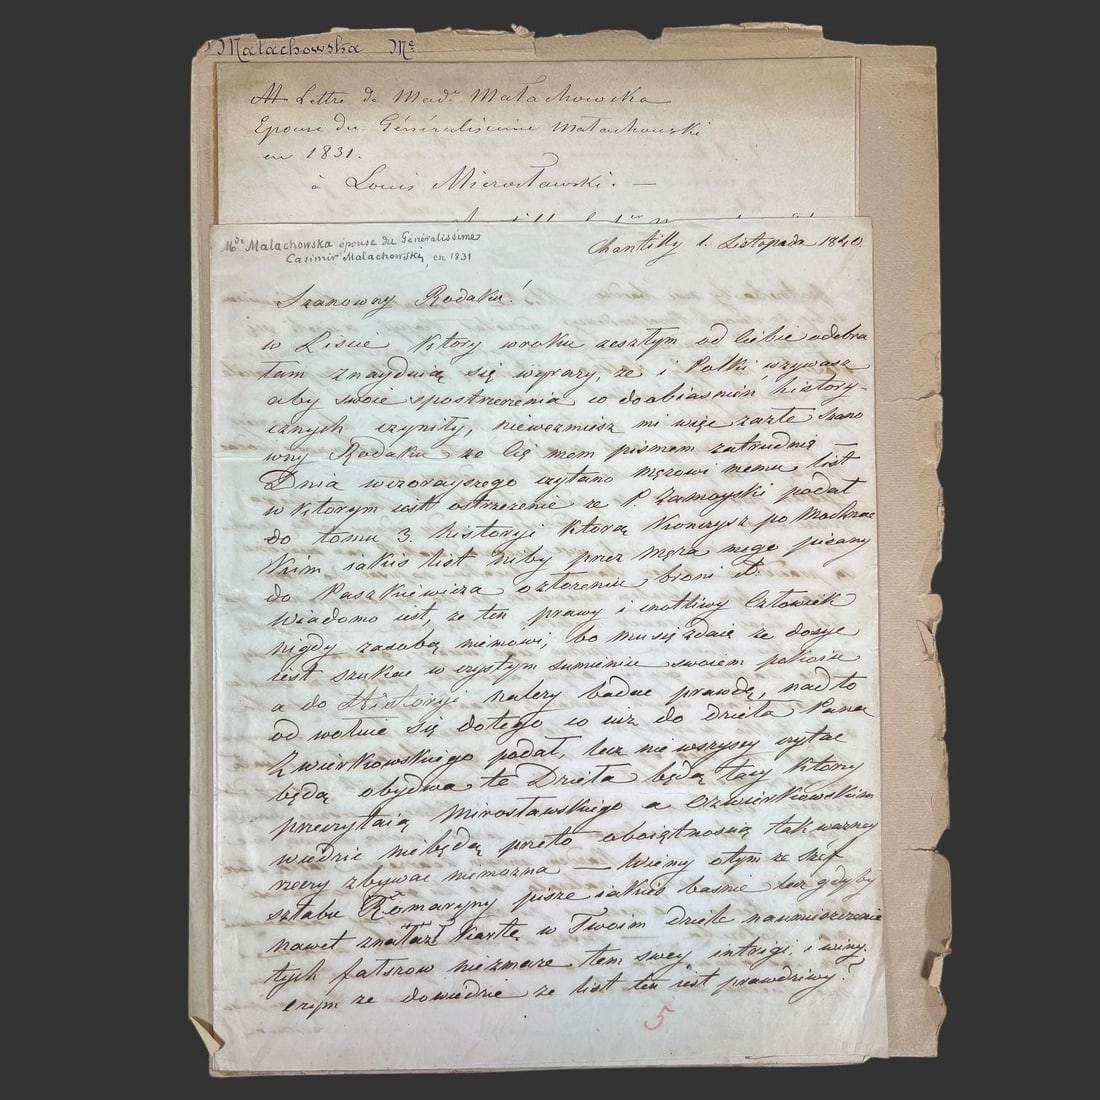 Malachowska Me
Lettre de Made Małachowska
Epouse du Généralissime Małachowski
en 1831.
à Louis Mierosławski. —
Mde Malachowska épouse du Généralissime
Casimir Malachowsky, en 1831
Chantilly 1. Listopada 1840.
Szanowny Rodaku!
w Liscie Ktory w roku zeszłym od Ciebie odebra
łam znayduią się wyrazy, ze i Polki wzywasz
aby swoie spostrzezenia co do obiasnień history-
cznych czyniły, niewezmiesz mi więc zazłe Szano
wny Rodaku ze Cię mem pismem zatrudnię
Dnia wczorayszego czytano męzowi memu list
w Ktorym iest ostrzezenie ze P. Zamoyski podał
do tomu 3. historyi Ktorą Konczysz po Mochnac
kim iakis list niby przez męza mego pisany
do Paszkiewicza o złozeniu broni et
Wiadomo iest, ze ten prawy i cnotliwy Człowiek
nigdy zasobą niemówi, bo mu się zdaie ze dosyc
iest szukac w czystym sumieniu swoiem pokoiu
a do Historyi nalezy badac prawdę, nadto
od wołuie się do tego co iuz do dzieła Pana
Zwierkowskiego podał, lecz nie wszyscy czytac
będą obydwa te Dzieła będą tacy Ktorzy
przeczytaią Mirosławskiego a o Zwierkowskim
wiedzic niebędą przeto oboiętnoscią tak wazney
rzeczy zbywac niemozna — Wiemy o tym ze szef
sztabu Rómaryny pisze iakies basnie lecz gdyby
nawet znalazł Kartę w Twoim dziele na umieszczenie
tych fałszow niezmaze tem swey intrygi i winy
czym ze dowiedzie ze list ten iest prawdziwy?
5